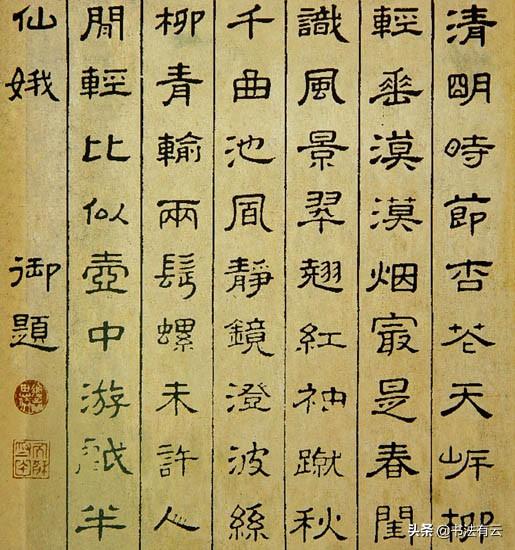 清明時節杏花天岸柳
輕垂漠漠烟最是春閨
識風景翠翹紅袖蹴秋
千曲池風靜鏡澄波絲
柳青輸兩髩螺未許人
閒輕比似壺中游戲半
仙娥 御題
头条 @书法有云